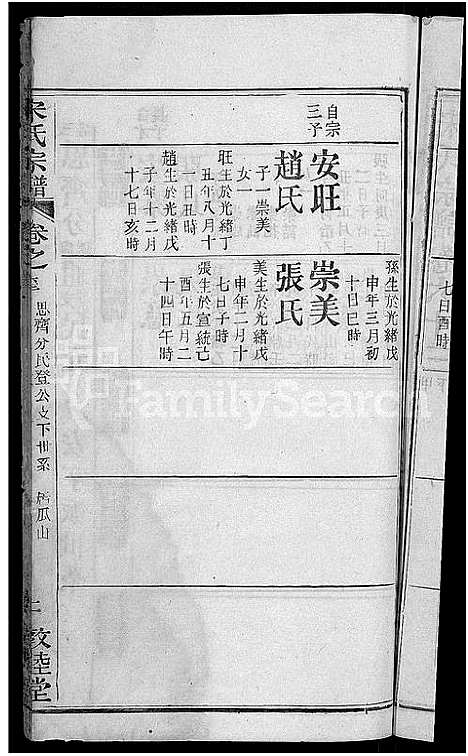 自宗
三子
安旺
趙氏
子一崇美
女一
旺生於光緒丁
丑年八月十
一日丑時
趙生於光緒戊
子年十二月
十七日亥時
孫生於光緒戊
申年三月初
十日巳時
崇美
張氏
美生於光緒戊
申年二月十
七日子時
張生於宣統亡
酉年五月二
十四日午時
宋氏宗譜
卷之
思齊分民登公支下世系
瓜山
敦睦堂
七日酉時
FamilySearch